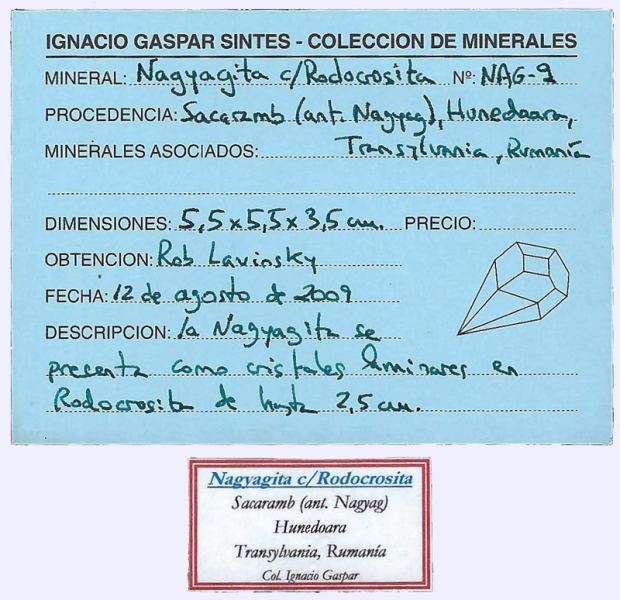 IGNACIO GASPAR SINTES - COLECCION DE MINERALES
MINERAL: Nagyagita c/Rodocrosita Nº: NAG-2
PROCEDENCIA: Sacaramb (ant. Nagyag), Hunedoara,
MINERALES ASOCIADOS: Transylvania, Rumanía
DIMENSIONES: 5,5 x 5,5 x 3,5 cm. PRECIO:
OBTENCION: Rob Lavinsky
FECHA: 12 de agosto de 2009
DESCRIPCION: la Nagyagita se
presenta como cristales laminares en
Rodocrosita de hasta 2,5 cm.
Nagyagita c/Rodocrosita
Sacaramb (ant. Nagyag)
Hunedoara
Transylvania, Rumanía
Col. Ignacio Gaspar